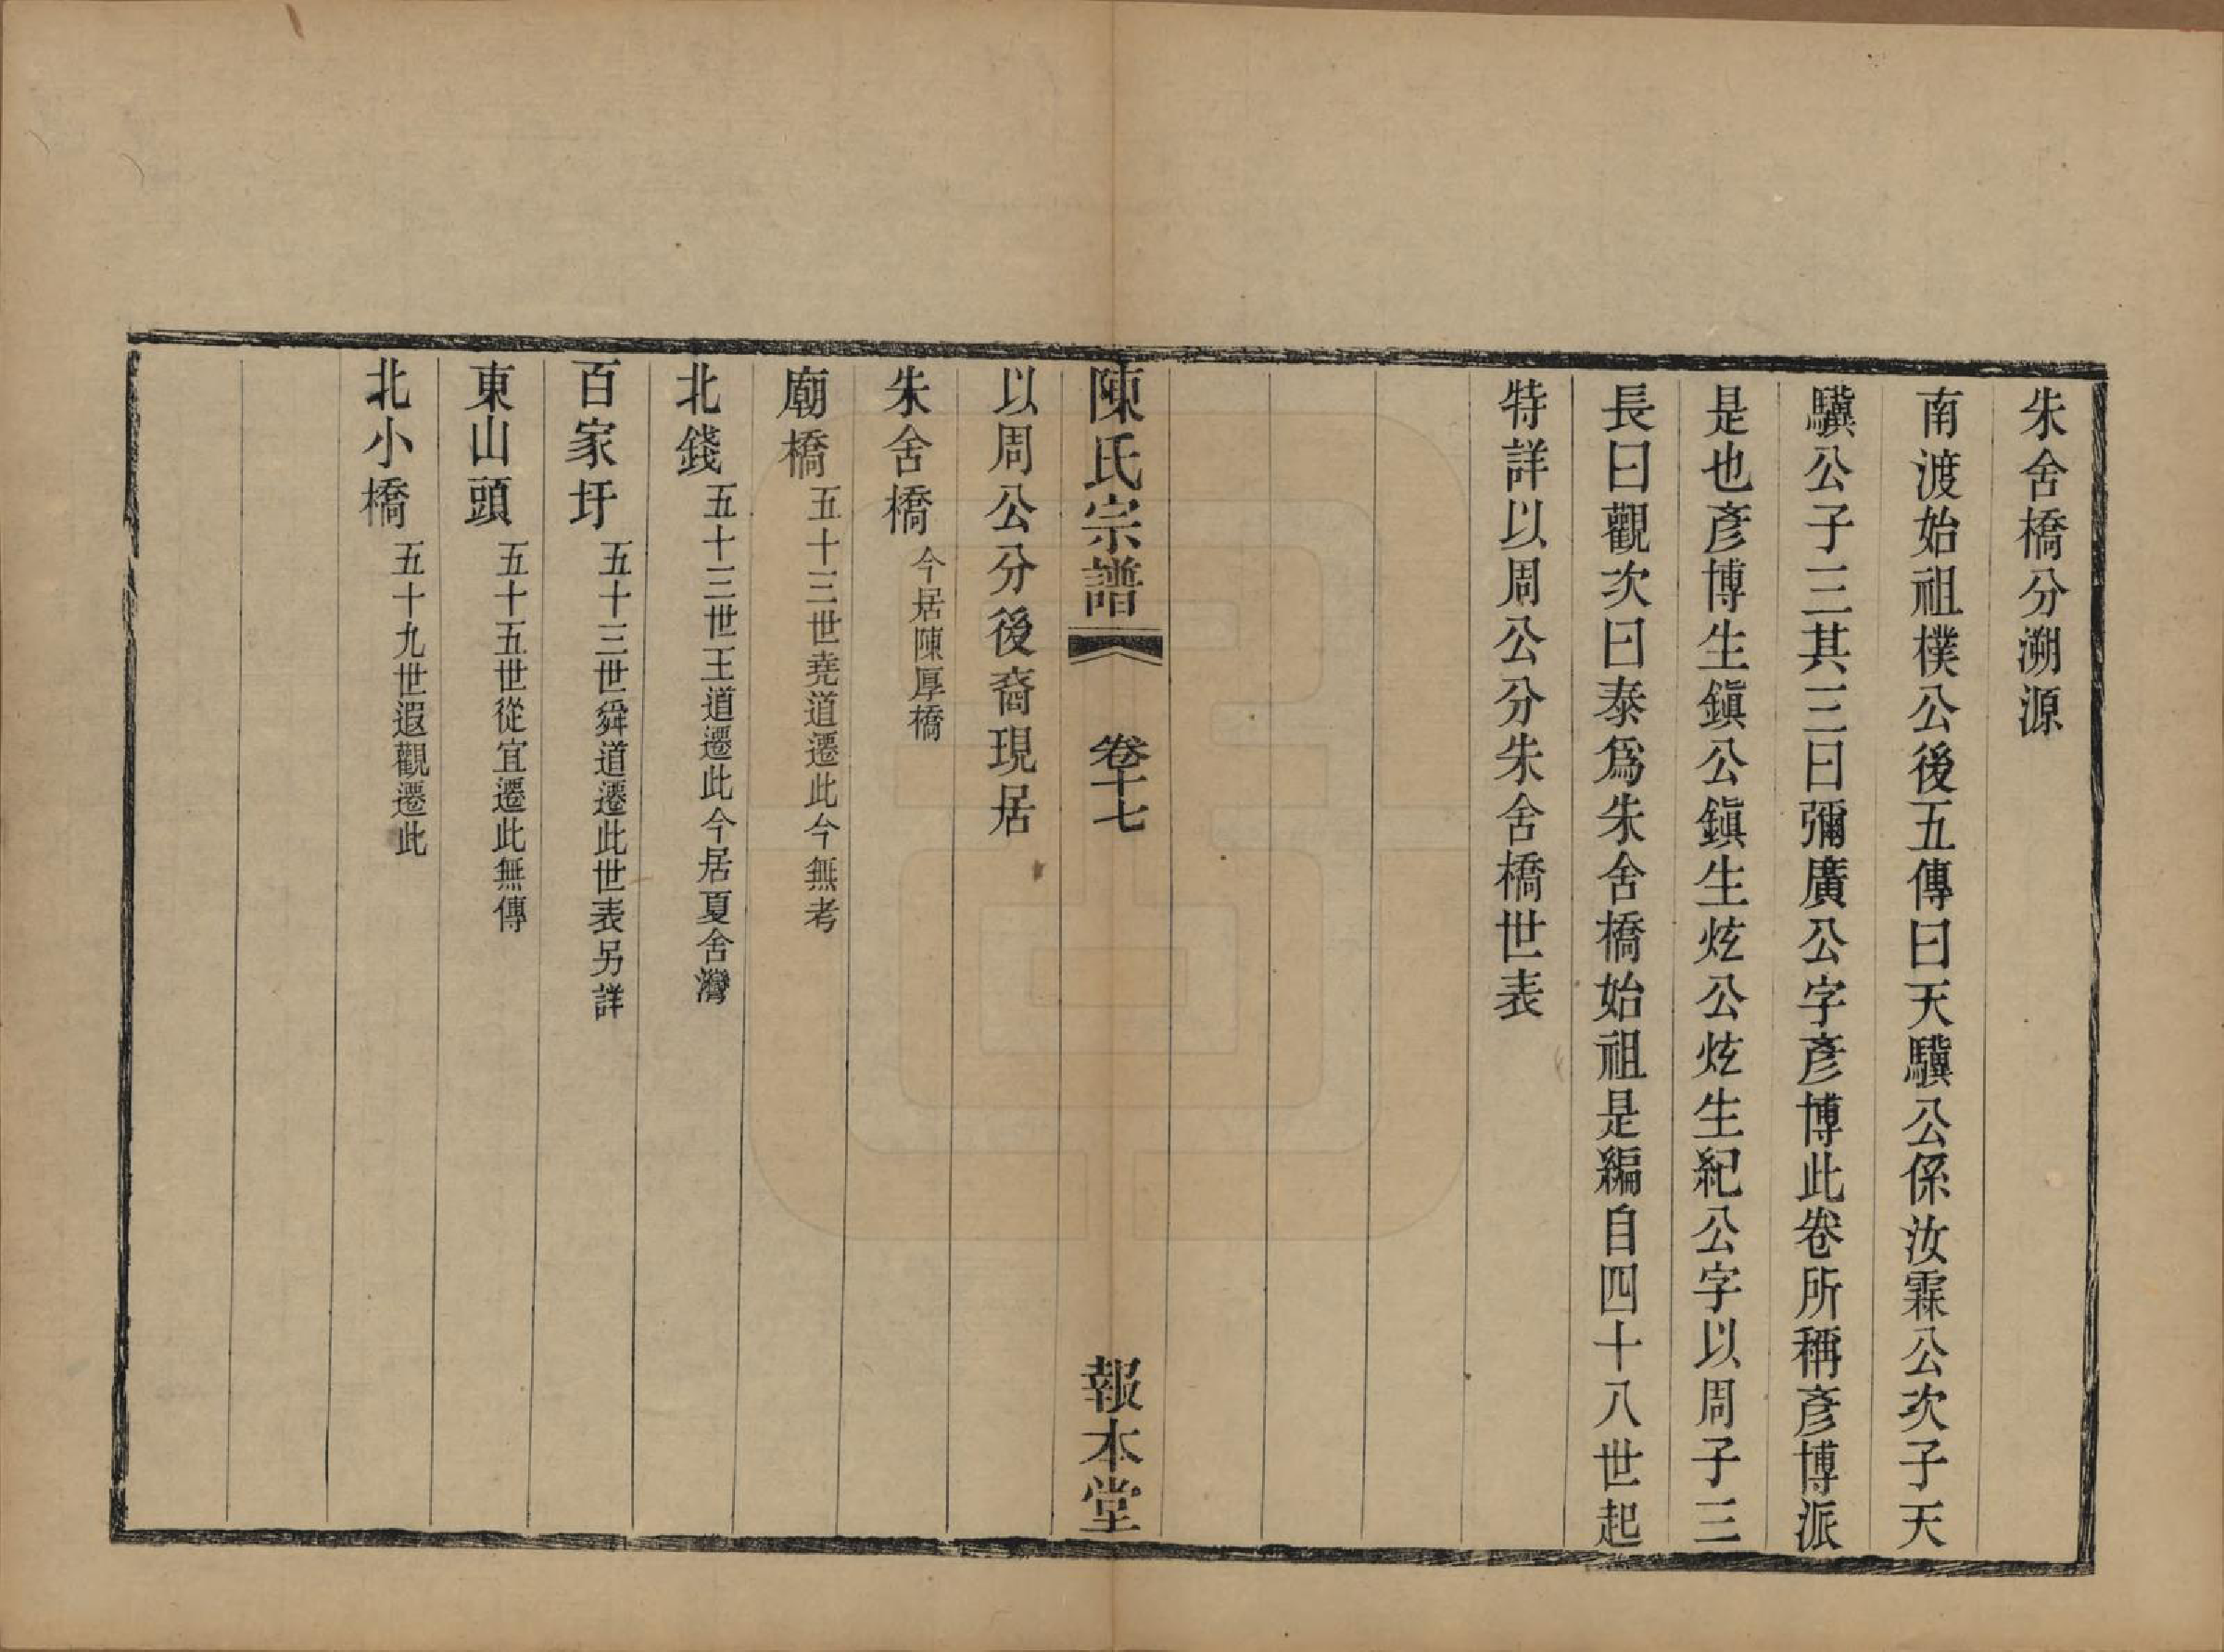 朱舍橋分溯源
南渡始祖樸公後五傳曰天驥公係汝霖公次子天
驥公子三其三曰彌廣公字彥博此卷所稱彥博派
是也彥博生鎭公鎭生炫公炫生紀公字以周子三
長曰觀次曰泰爲朱舍橋始祖是編自四十八世起
特詳以周公分朱舍橋世表
陳氏宗譜 卷十七 報本堂
以周公分後裔現居
朱舍橋 今居陳厚橋
廟橋 五十三世堯道遷此今無考
北錢 五十三世王道遷此今居夏舍灣
百家圩 五十三世舜道遷此世表另詳
東山頭 五十五世從宜遷此無傳
北小橋 五十九世遐觀遷此